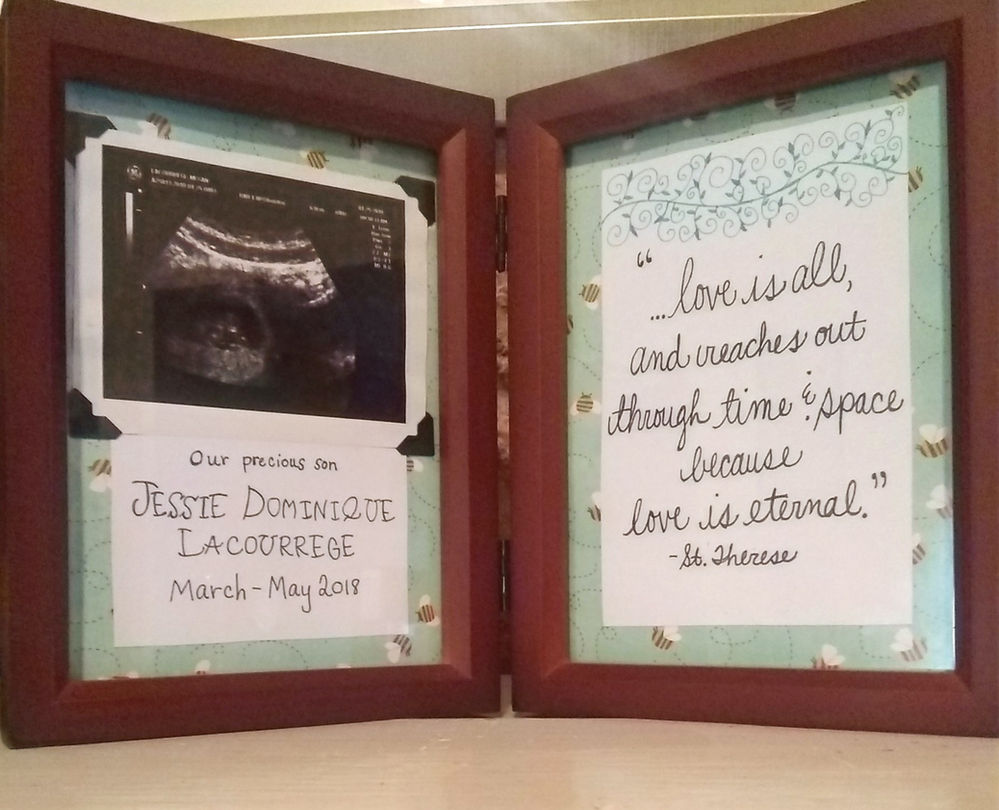 Our precious son
JESSIE DOMINIQUE
LACOURREGE
March - May 2018
“
...love is all,
and reaches out
through time & space
because
love is eternal.”
- St. Therese